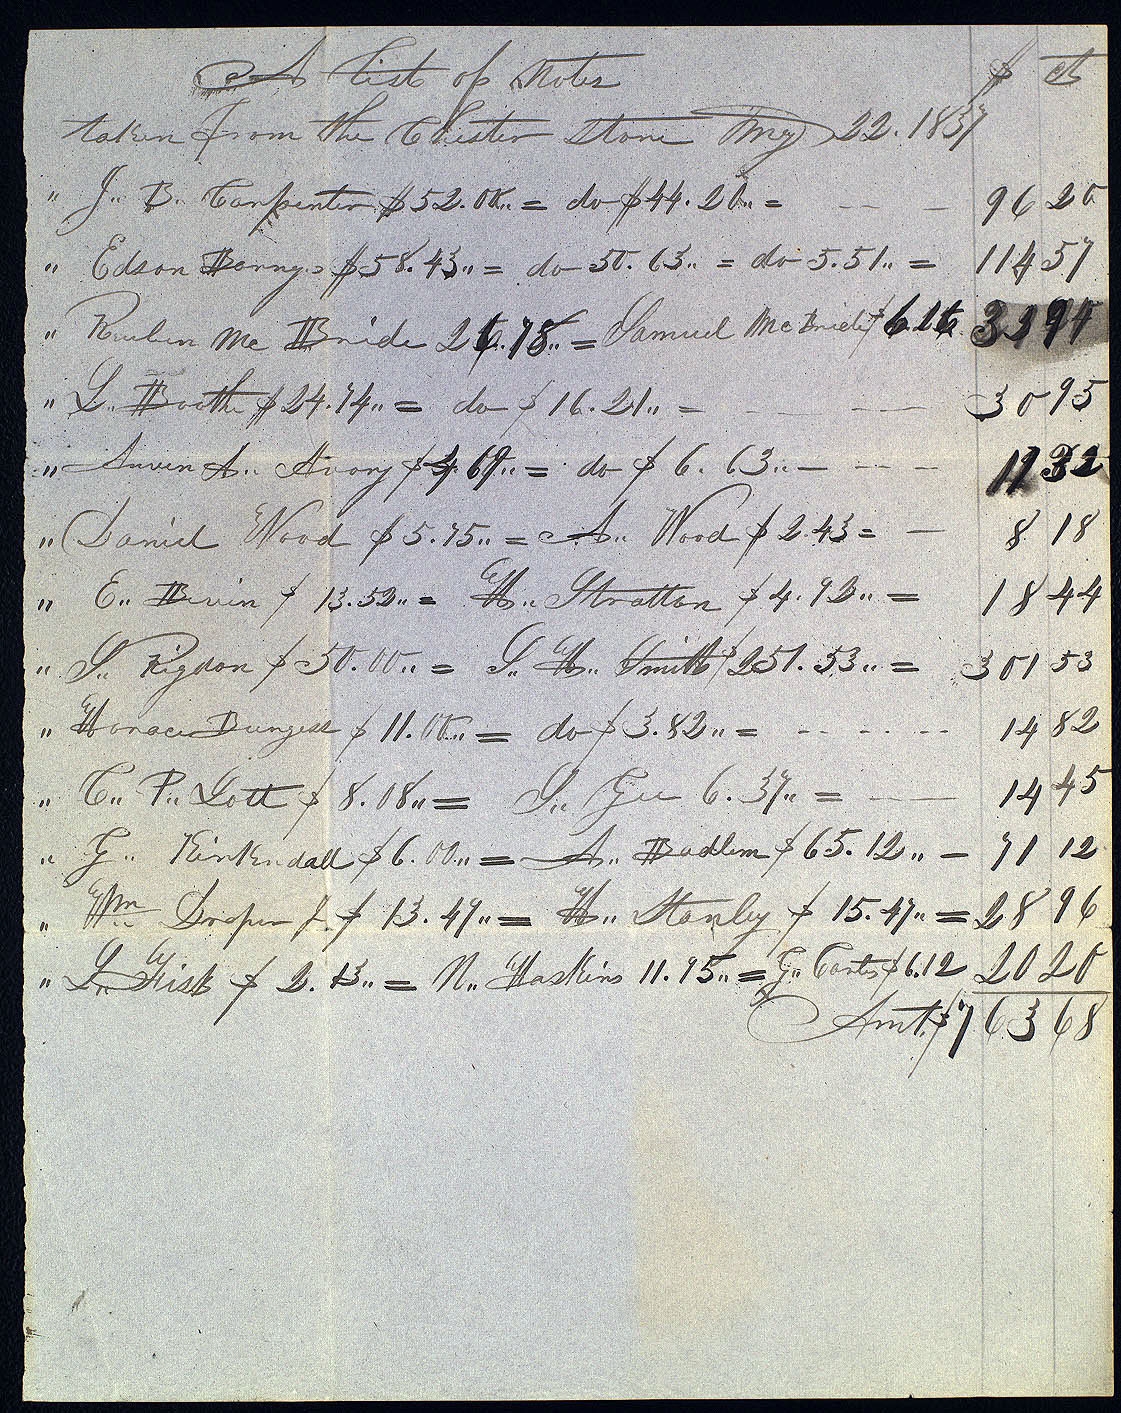 A List of Notes $ ct
taken from the Chester Store May 22. 1837
" J.. B. Carpenter $52.00.. = do $44.20.. = - - - 96 20
" Edson Barney $58.43.. = do 50.63.. = do 5.51.. = 114 57
" Reuben Mc Bride 26.78.. = Samuel McBride $6.16 32 94
" L.. Boothe $24.74.. = do $16.21.. = - - - 30 95
" A.. Avory $4.69.. = do $6.63.. - - - - 11 32
" Daniel Wood $5.75.. = A.. Wood $2.43 = - 8 18
" E.. Bivin $13.52.. = H.. Stratton $4.92.. = 18 44
" S.. Rigdon $50.00.. = S.. H.. Smith $251.53.. = 301 53
" Horace Burgess $11.00.. = do $3.82.. = - - - - - 14 82
" C.. P.. Lott $8.08.. = S.. Gee 6.37.. = - - 14 45
" G.. Kirkendall $6.00.. = A.. Badlem $65.12.. - 71 12
" Wm Draper Jr. $13.49.. = H.. Stanley $15.47.. = 28 96
" L.. Fisk $2.13.. = N.. Haskins 11.95.. = G.. Carter $6.12 20 20
Amt. $763 68